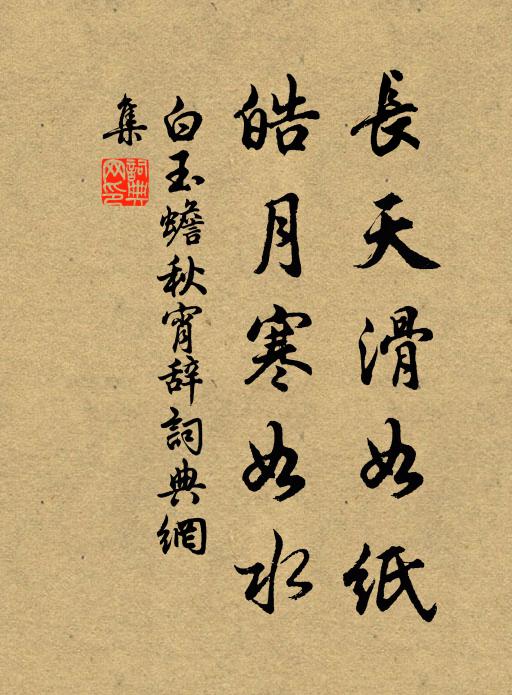 長天滑如紙
皓月寒如水
白玉蟾秋宵辭詞典網
集
詞典
网印